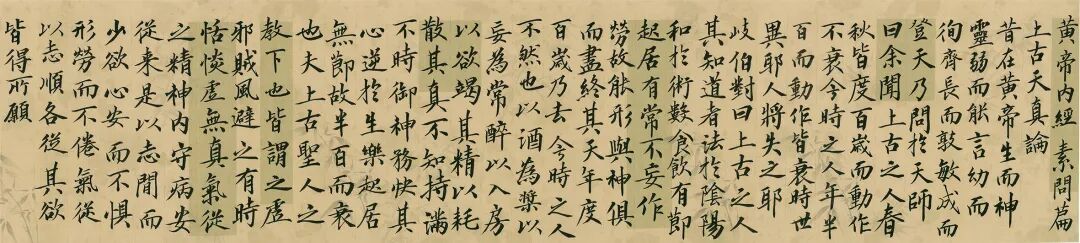 黄帝内經 素問篇
上古天真論
昔在黄帝生而神
靈弱而能言幼而
徇齊長而敦敏成而
登天乃問於天師
曰余聞上古之人春
秋皆度百歲而動作
不衰今時之人年半
百而動作皆衰時世
異耶人將失之耶
岐伯對曰上古之人
其知道者法於陰陽
和於術數食飲有節
起居有常不妄作
勞故能形與神俱
而盡終其天年度
百歲乃去今時之人
不然也以酒為漿以
妄為常醉以入房
以欲竭其精以耗
散其真不知持滿
不時御神務快其
心逆於生樂起居
無節故半百而衰
也夫上古聖人之
教下也皆謂之虛
邪賊風避之有時
恬惔虛無真氣從
之精神内守病安
從来是以志閒而
少欲心安而不惧
形勞而不倦氣從
以志順各從其欲
皆得所願